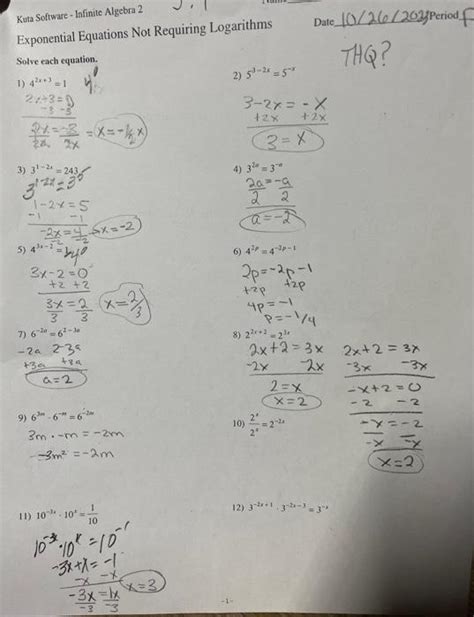 Kuta Software - Infinite Algebra 2
Exponential Equations Not Requiring Logarithms
Date 10/26/2023 Period F
Solve each equation.
THQ?
1) 4^(2x+3) = 1
4^0
2x+3=0
-3 -3
2x = -3
x = -1½ x
2) 5^(3-2x) = 5^(-x)
3-2x = -x
+2x +2x
3 = x
3) 3^(1-2x) = 243
3^(1-2x) = 3^5
1-2x = 5
-1 -1
-2x = 4
-2 -2
x = -2
4) 3^(2a) = 3^(-a)
2a = -a
2 2
a = -2
5) 4^(3x-2) = 1
4^0
3x-2=0
+2 +2
3x = 2
3 3
x = 2/3
6) 4^(2p) = 4^(-2p-1)
2p = -2p-1
+2p +2p
4p = -1
p = -1/4
7) 6^(-2a) = 6^(2-3a)
-2a 2-3a
+3a +3a
a = 2
8) 2^(2x+2) = 2^(3x)
2x+2 = 3x
-2x -2x
2 = x
x = 2
2x+2 = 3x
-3x -3x
-x+2 = 0
-2 -2
-x = -2
-x -x
x = 2
9) 6^(3m) · 6^(-m) = 6^(-2m)
3m · -m = -2m
-3m² = -2m
10) 2^x/2^x = 2^(-2x)
11) 10^(-3x) · 10^x = 1/10
10^(-3x) · 10^x = 10^(-1)
-3x+x = -1
-x -x
-3x = 1x
-3 -3
x = 3
12) 3^(-2x+1) · 3^(-2x-3) = 3^(-x)
-1-